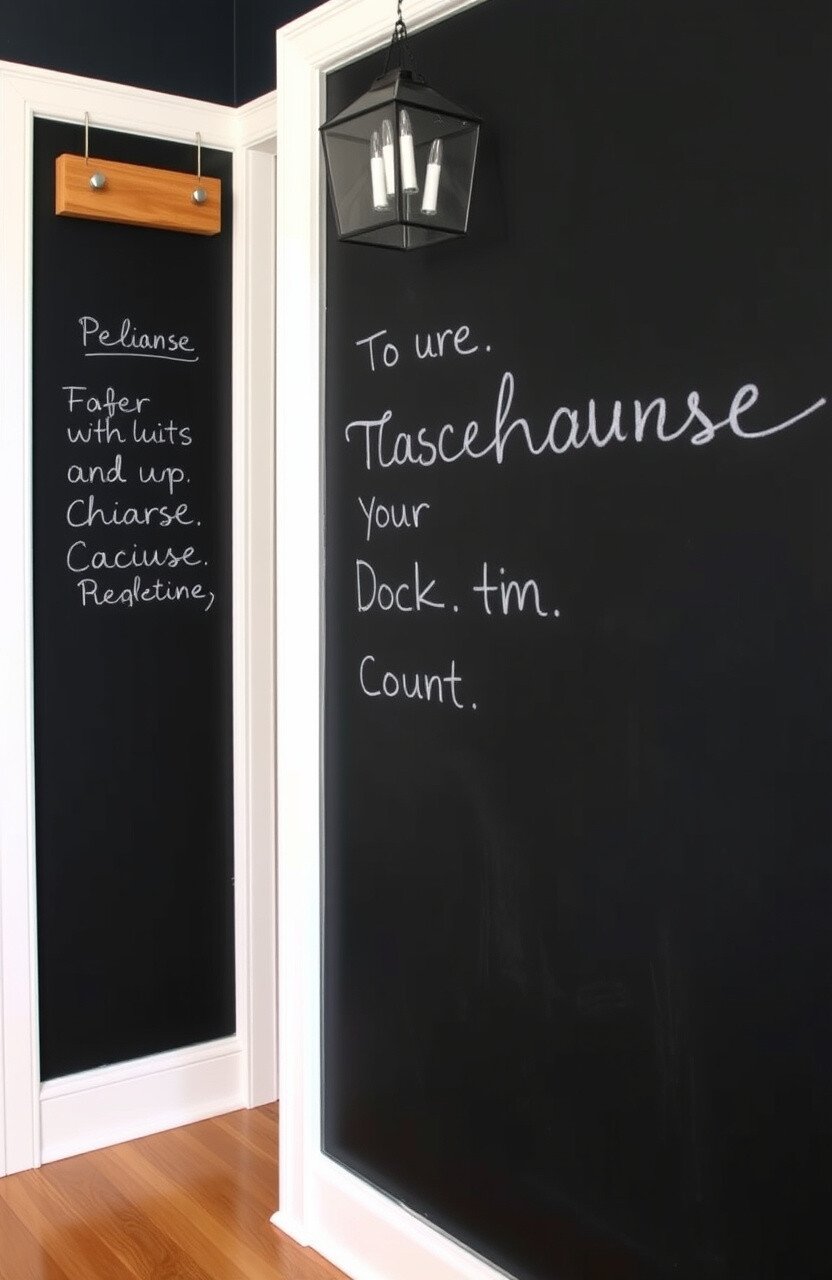 Pelianse
Fafer
with luits
and up.
Chiarse.
Caciuse.
Regletine,
To ure.
Tlascehaunse
Your
Dock. tim.
Count.